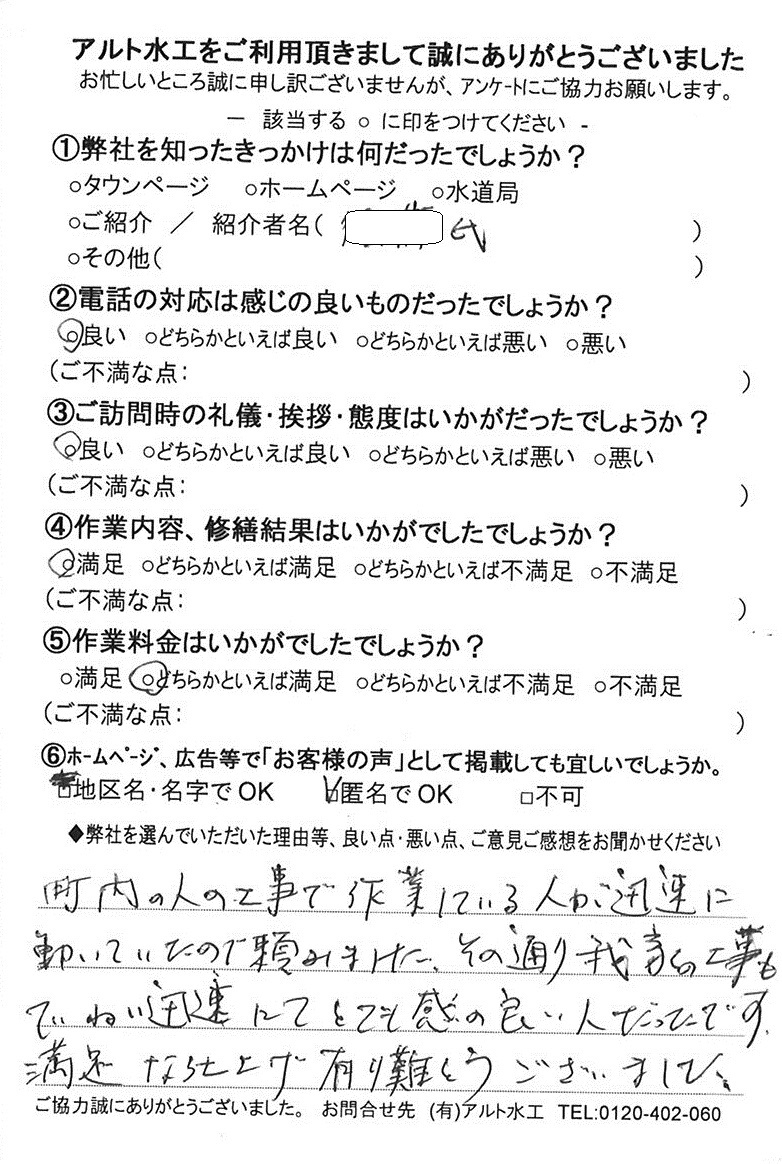 アルト水工をご利用頂きまして誠にありがとうございました
お忙しいところ誠に申し訳ございませんが、アンケートにご協力お願いします。
－ 該当する ○ に印をつけてください -
①弊社を知ったきっかけは何だったでしょうか？
○タウンページ ○ホームページ ○水道局
○ご紹介 ／ 紹介者名( 氏 )
○その他( )
②電話の対応は感じの良いものだったでしょうか？
○良い ○どちらかといえば良い ○どちらかといえば悪い ○悪い
(ご不満な点: )
③ご訪問時の礼儀・挨拶・態度はいかがだったでしょうか？
○良い ○どちらかといえば良い ○どちらかといえば悪い ○悪い
(ご不満な点: )
④作業内容、修繕結果はいかがでしたでしょうか？
○満足 ○どちらかといえば満足 ○どちらかといえば不満足 ○不満足
(ご不満な点: )
⑤作業料金はいかがでしたでしょうか？
○満足 ○どちらかといえば満足 ○どちらかといえば不満足 ○不満足
(ご不満な点: )
⑥ホームページ、広告等で「お客様の声」として掲載しても宜しいでしょうか。
□地区名・名字でOK □匿名でOK □不可
◆弊社を選んでいただいた理由等、良い点・悪い点、ご意見ご感想をお聞かせください
町内の人の工事で作業している人が迅速に
動いていたので頼みました。その通り我家の工事も
ていねい迅速にてとても感の良い人だったです。
満足なる仕上げ有り難とうございました。
ご協力誠にありがとうございました。 お問合せ先 (有)アルト水工 TEL:0120-402-060